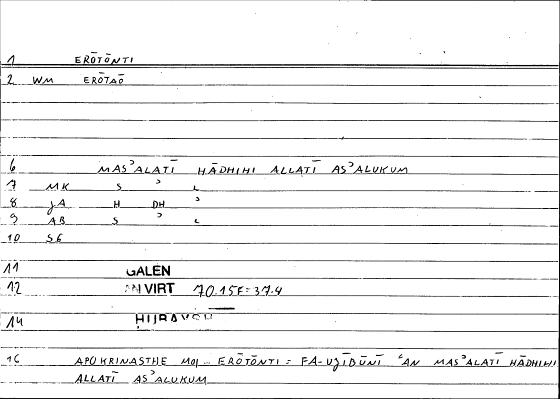 1 ERŌTŌNTI
2 WM ERŌTAŌ
6 MASʾALATĪ HĀDHIHI ALLATĪ ASʾALUKUM
7 MK S ʾ L
8 JA H DH ʾ
9 AB S ʾ L
10 SG
11 GALEN
12 AN VIRT 70.15F=37.4
14
16 APOKRINASTHE MOI ERŌTŌNTI = FA-UJĪBŪNĪ ʿAN MASʾALATĪ HĀDHIHI
ALLATĪ ASʾALUKUM